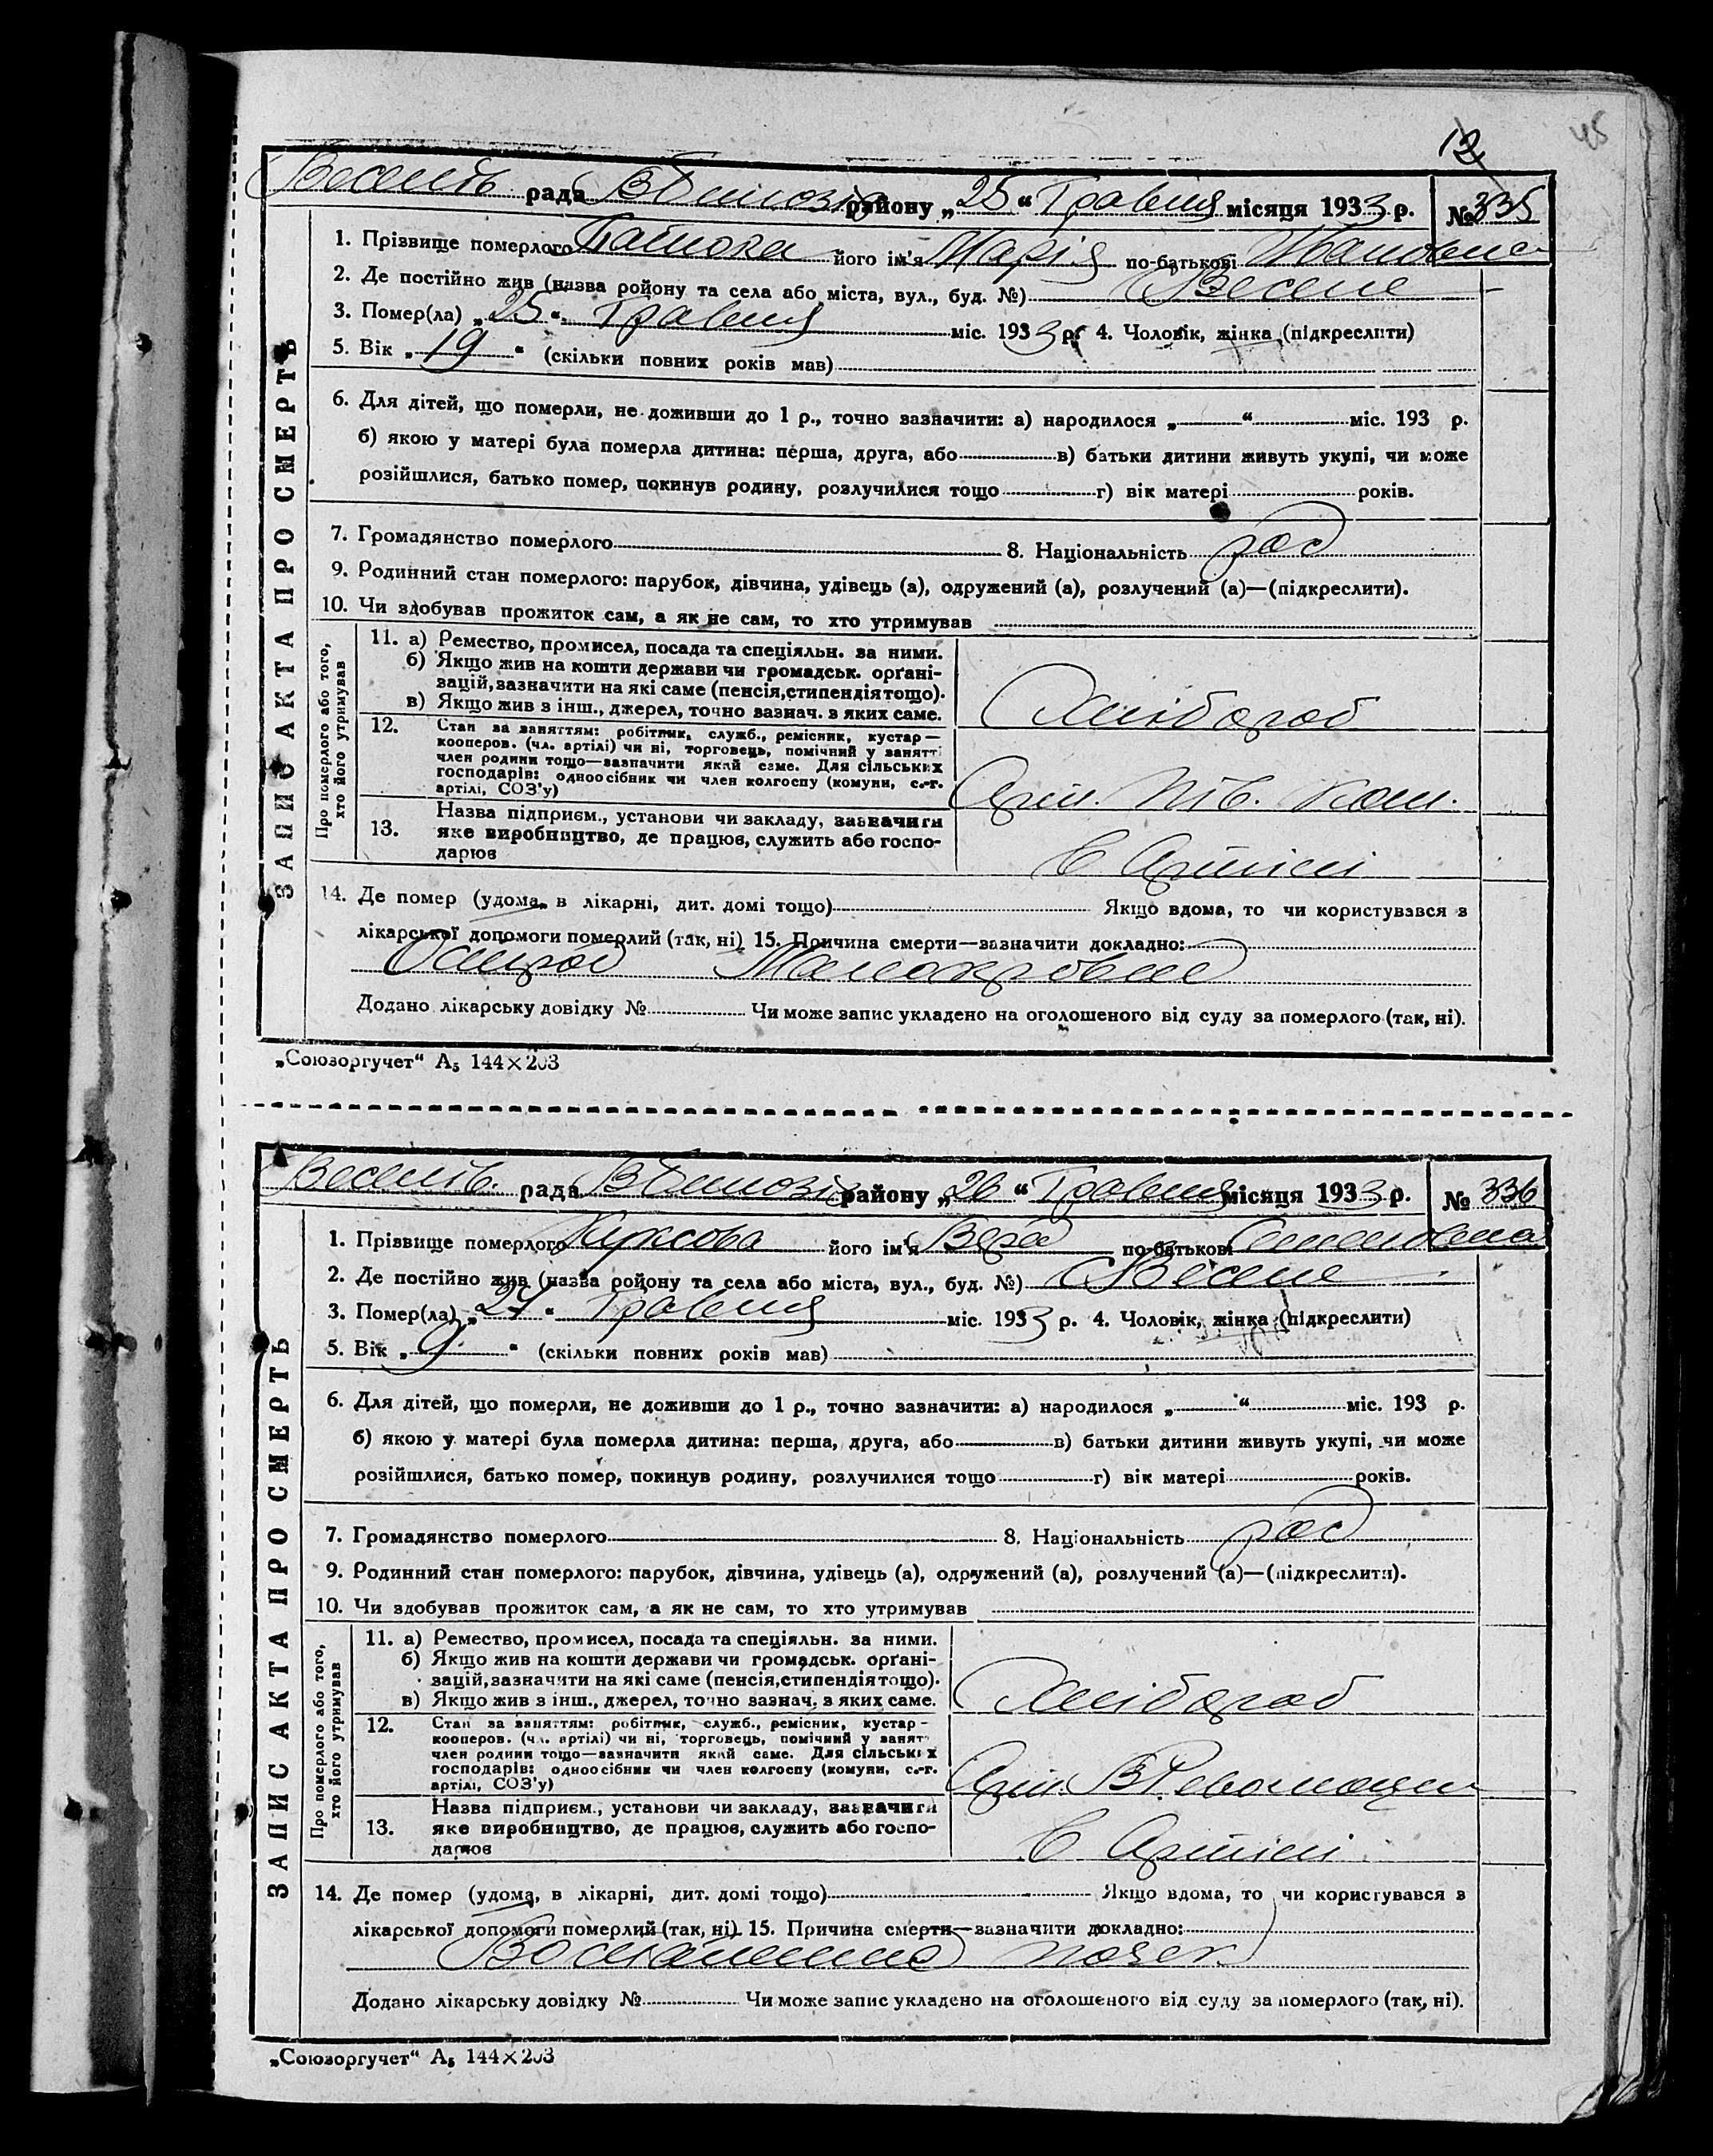 12 45
Весенів рада району „25“ Травня місяця 1933 р. № 335
1. Прізвище померлого його ім'я Марія по-батькові Ивановна
2. Де постійно жив (назва ройону та села або міста, вул., буд. №) Весене
3. Помер(ла) „25“ Травня міс. 1933 р. 4. Чоловік, жінка (підкреслити)
5. Вік „19“ (скільки повних років мав)
6. Для дітей, що померли, не доживши до 1 р., точно зазначити: а) народилося „ “ міс. 193 р.
б) якою у матері була померла дитина: перша, друга, або в) батьки дитини живуть укупі, чи може
розійшлися, батько помер, покинув родину, розлучилися тощо г) вік матері років.
7. Громадянство померлого 8. Національність рос
9. Родинний стан померлого: парубок, дівчина, удівець (а), одружений (а), розлучений (а)—(підкреслити).
10. Чи здобував прожиток сам, а як не сам, то хто утримував
ЗАПИС АКТА ПРО СМЕРТЬ
Про померлого або того,
хто його утримував
11. а) Ремество, промисел, посада та спеціяльн. за ними.
б) Якщо жив на кошти держави чи громадськ. орґані-
зацій, зазначити на які саме (пенсія, стипендія тощо).
в) Якщо жив з інш., джерел, точно зазнач. з яких саме.
Хлібороб
12. Стан за заняттям: робітник, служб., ремісник, кустар—
кооперов. (чл. артілі) чи ні, торговець, помічний у занятті
член родини тощо—зазначити який саме. Для сільських
господарів: одноосібник чи член колгоспу (комуни, с.-г.
артілі, СОЗ'у)
Арт.
13. Назва підприєм., установи чи закладу, зазначити
яке виробництво, де працює, служить або госпо-
дарює
В Артілі
14. Де помер (удома, в лікарні, дит. домі тощо) Якщо вдома, то чи користувався з
лікарської допомоги померлий (так, ні) 15. Причина смерти—зазначити докладно:
Малокровие
Додано лікарську довідку № Чи може запис укладено на оголошеного від суду за померлого (так, ні).
„Союзоргучет“ А₅ 144×203
Весенів. рада району „26“ Травня місяця 1933 р. № 336
1. Прізвище померлого його ім'я Вера по-батькові
2. Де постійно жив (назва ройону та села або міста, вул., буд. №) Весене
3. Помер(ла) „24“ Травня міс. 1933 р. 4. Чоловік, жінка (підкреслити)
5. Вік „9“ (скільки повних років мав)
6. Для дітей, що померли, не доживши до 1 р., точно зазначити: а) народилося „ “ міс. 193 р.
б) якою у матері була померла дитина: перша, друга, або в) батьки дитини живуть укупі, чи може
розійшлися, батько помер, покинув родину, розлучилися тощо г) вік матері років.
7. Громадянство померлого 8. Національність рос
9. Родинний стан померлого: парубок, дівчина, удівець (а), одружений (а), розлучений (а)—(підкреслити).
10. Чи здобував прожиток сам, а як не сам, то хто утримував
ЗАПИС АКТА ПРО СМЕРТЬ
Про померлого або того,
хто його утримував
11. а) Ремество, промисел, посада та спеціяльн. за ними.
б) Якщо жив на кошти держави чи громадськ. орґані-
зацій, зазначити на які саме (пенсія, стипендія тощо).
в) Якщо жив з інш., джерел, точно зазнач. з яких саме.
Хлібороб
12. Стан за заняттям: робітник, служб., ремісник, кустар-
кооперов. (чл. артілі) чи ні, торговець, помічний у занят
член родини тощо—зазначити який саме. Для сільських
господарів: одноосібник чи член колгоспу (комуни, с.-г.
артілі, СОЗ'у)
Арт.
13. Назва підприєм., установи чи закладу, зазначити
яке виробництво, де працює, служить або госпо-
дарює
В Артілі
14. Де помер (удома, в лікарні, дит. домі тощо) Якщо вдома, то чи користувався з
лікарської допомоги померлий (так, ні) 15. Причина смерти—зазначити докладно:
почек
Додано лікарську довідку № Чи може запис укладено на оголошеного від суду за померлого (так, ні).
„Союзоргучет“ А₅ 144×203